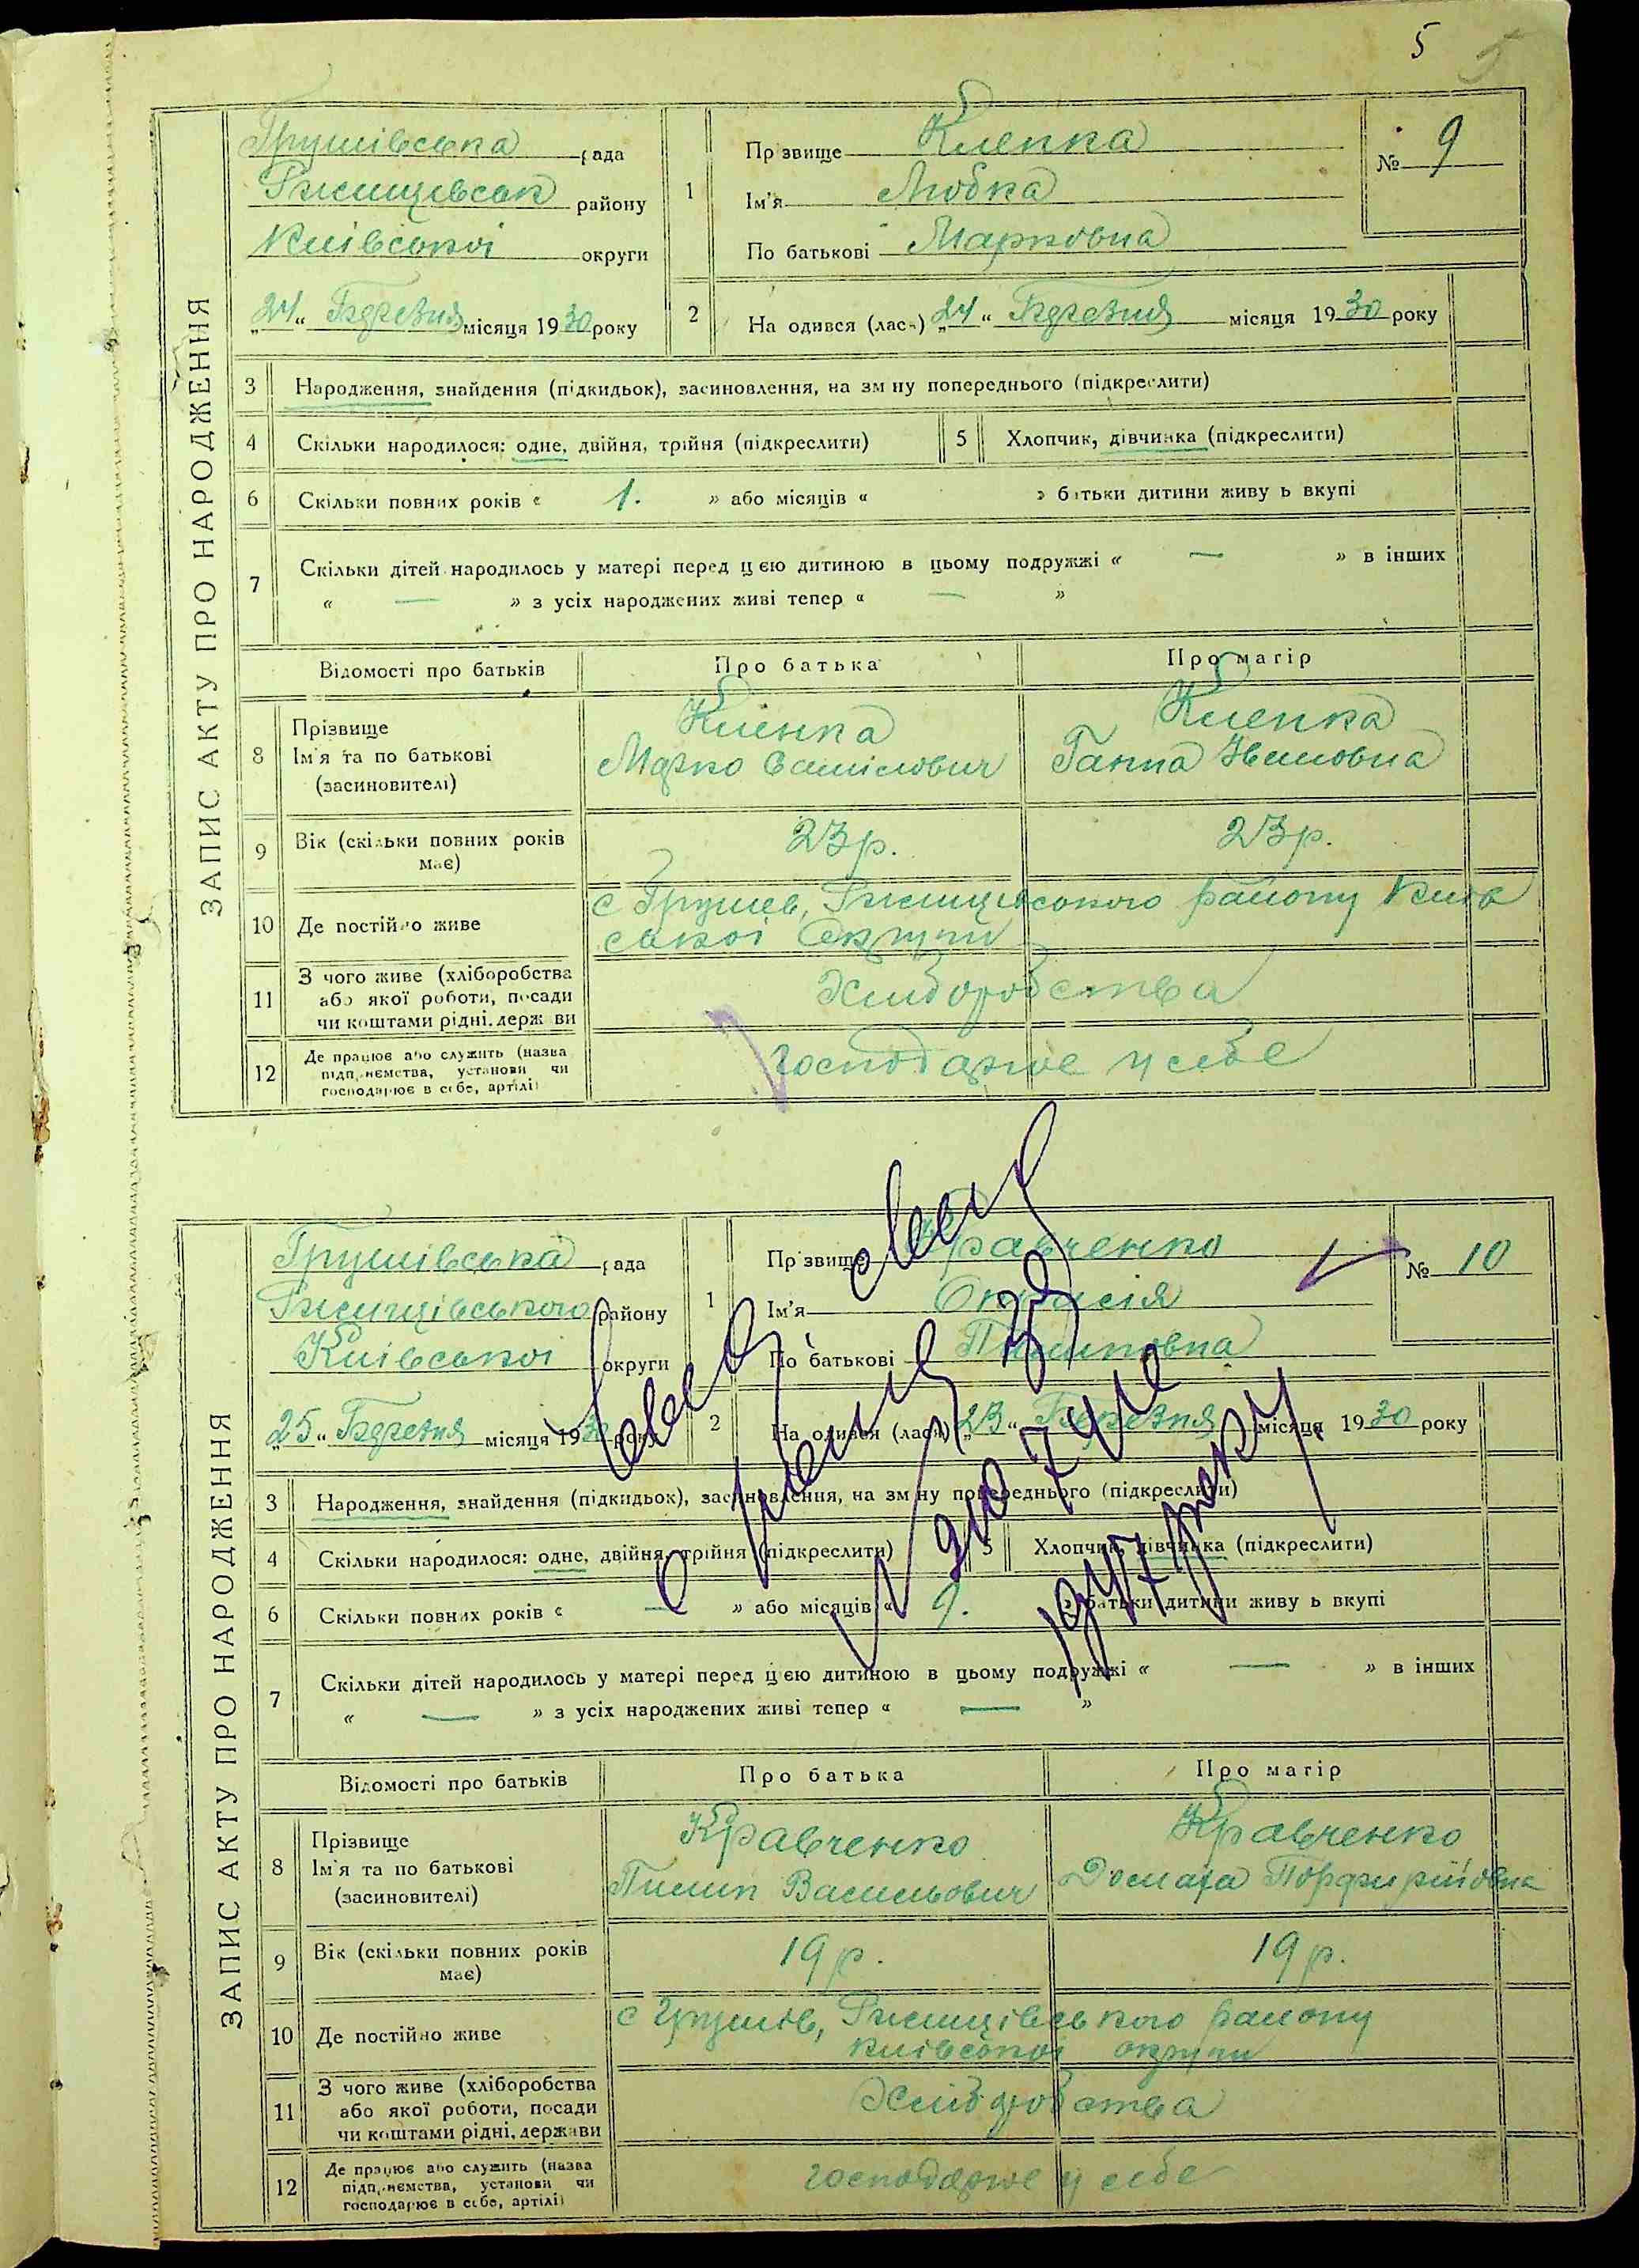 5 5
ЗАПИС АКТУ ПРО НАРОДЖЕННЯ
Грушівська рада
Ржищівськ району
Київської округи
„24“ Березня місяця 1930 року
1
Прізвище Клепка
Ім'я Любка
По батькові Марковна
№ 9
2 На одився (лася) „24“ Березня місяця 1930 року
3 Народження, знайдення (підкидьок), засиновлення, на зм ну попереднього (підкреслити)
4 Скільки народилося: одне, двійня, трійня (підкреслити) 5 Хлопчик, дівчинка (підкреслити)
6 Скільки повних років « 1. » або місяців « » батьки дитини живу ь вкупі
7 Скільки дітей народилось у матері перед цією дитиною в цьому подружжі « — » в інших
« — » з усіх народжених живі тепер « — »
Відомості про батьків Про батька Про матір
8 Прізвище
Ім'я та по батькові
(засиновителі)
Клепка
Марко
Клепка
Ганна Ивановна
9 Вік (скільки повних років має) 23 р. 23 р.
10 Де постійно живе
с Грушев, Ржищівського району Київ
ської Округи
11 З чого живе (хліборобства
або якої роботи, посади
чи коштами рідні, держ ви
Хлиборобства
12 Де працює або служить (назва
підприємства, установи чи
господарює в себе, артілі)
господарює у себе
ЗАПИС АКТУ ПРО НАРОДЖЕННЯ
Грушівська рада
Ржищівського району
Київської округи
„25“ Березня місяця 1930 року
1
Прізвище Кравченко
Ім'я
По батькові Пилиповна
№ 10
2 На одився (лася) „23“ Березня місяця 1930 року
3 Народження, знайдення (підкидьок), засиновлення, на зм ну попереднього (підкреслити)
4 Скільки народилося: одне, двійня, трійня (підкреслити) 5 Хлопчик, дівчинка (підкреслити)
6 Скільки повних років « — » або місяців « 9. » батьки дитини живу ь вкупі
7 Скільки дітей народилось у матері перед цією дитиною в цьому подружжі « — » в інших
« — » з усіх народжених живі тепер « — »
1947 року
Відомості про батьків Про батька Про матір
8 Прізвище
Ім'я та по батькові
(засиновителі)
Кравченко
Пилип Васильович
Кравченко
Порфирійовна
9 Вік (скільки повних років має) 19 р. 19 р.
10 Де постійно живе
с Грушів, Ржищівського району
київської округи
11 З чого живе (хліборобства
або якої роботи, посади
чи коштами рідні, держави
Хлиборобства
12 Де працює або служить (назва
підприємства, установи чи
господарює в себе, артілі)
господарює у себе